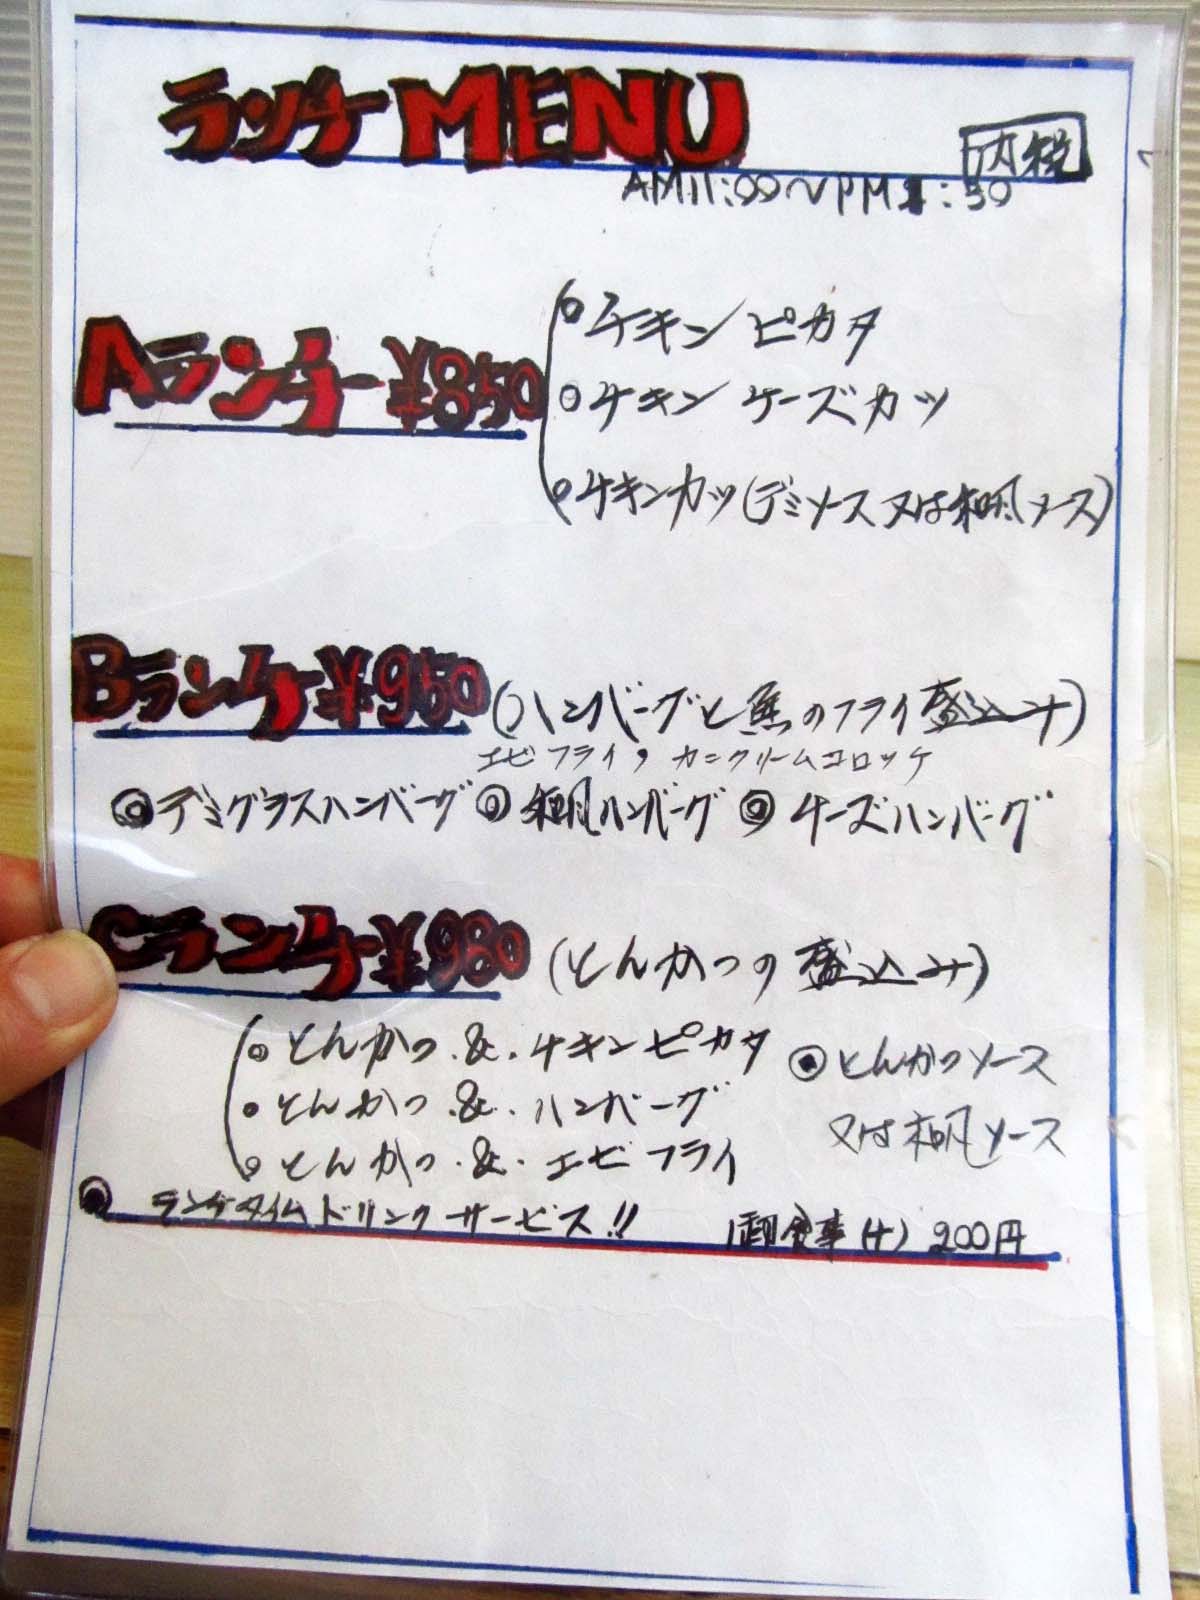 ランチMENU
内税
AM11:00〜PM1:30
Aランチ ¥850
チキンピカタ
チキンチーズカツ
チキンカツ(デミソース又は和風ソース)
Bランチ ¥950 (ハンバーグと魚のフライ盛込み)
エビフライ,カニクリームコロッケ
◎デミグラスハンバーグ ◎和風ハンバーグ ◎チーズハンバーグ
Cランチ ¥980 (とんかつの盛込み)
とんかつ&チキンピカタ
とんかつ&ハンバーグ
とんかつ&エビフライ
◎とんかつソース
又は和風ソース
◎ランチタイムドリンクサービス!!
御食事(付) 200円